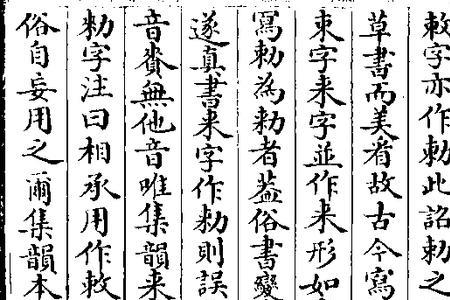 敕字亦作勅此詔勅之
草書而美看故古今寫
束字来字並作来形如
寫勅為勑者蓋俗書變
遂真書来字作勑則誤
音賚無他音唯集韻来
勑字注曰相承用作敕
俗自妄用之爾集韻本